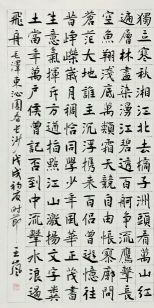 獨立寒秋湘江北去橘子洲頭看萬山紅
遍層林盡染漫江碧透百舸爭流鷹擊長
空魚翔淺底萬類霜天競自由悵寥廓問
蒼茫大地誰主沉浮攜來百侶曾遊憶往
昔崢嶸歲月稠恰同學少年風華正茂書
生意氣揮斥方遒指點江山激揚文字糞
土當年萬戶侯曾記否到中流擊水浪遏
飛舟 毛澤東沁園春長沙 戊戌初夏時節 王